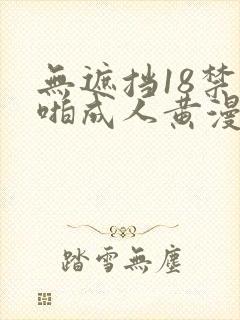 無遮挡18禁
啪成人黄漫
踏雪無塵